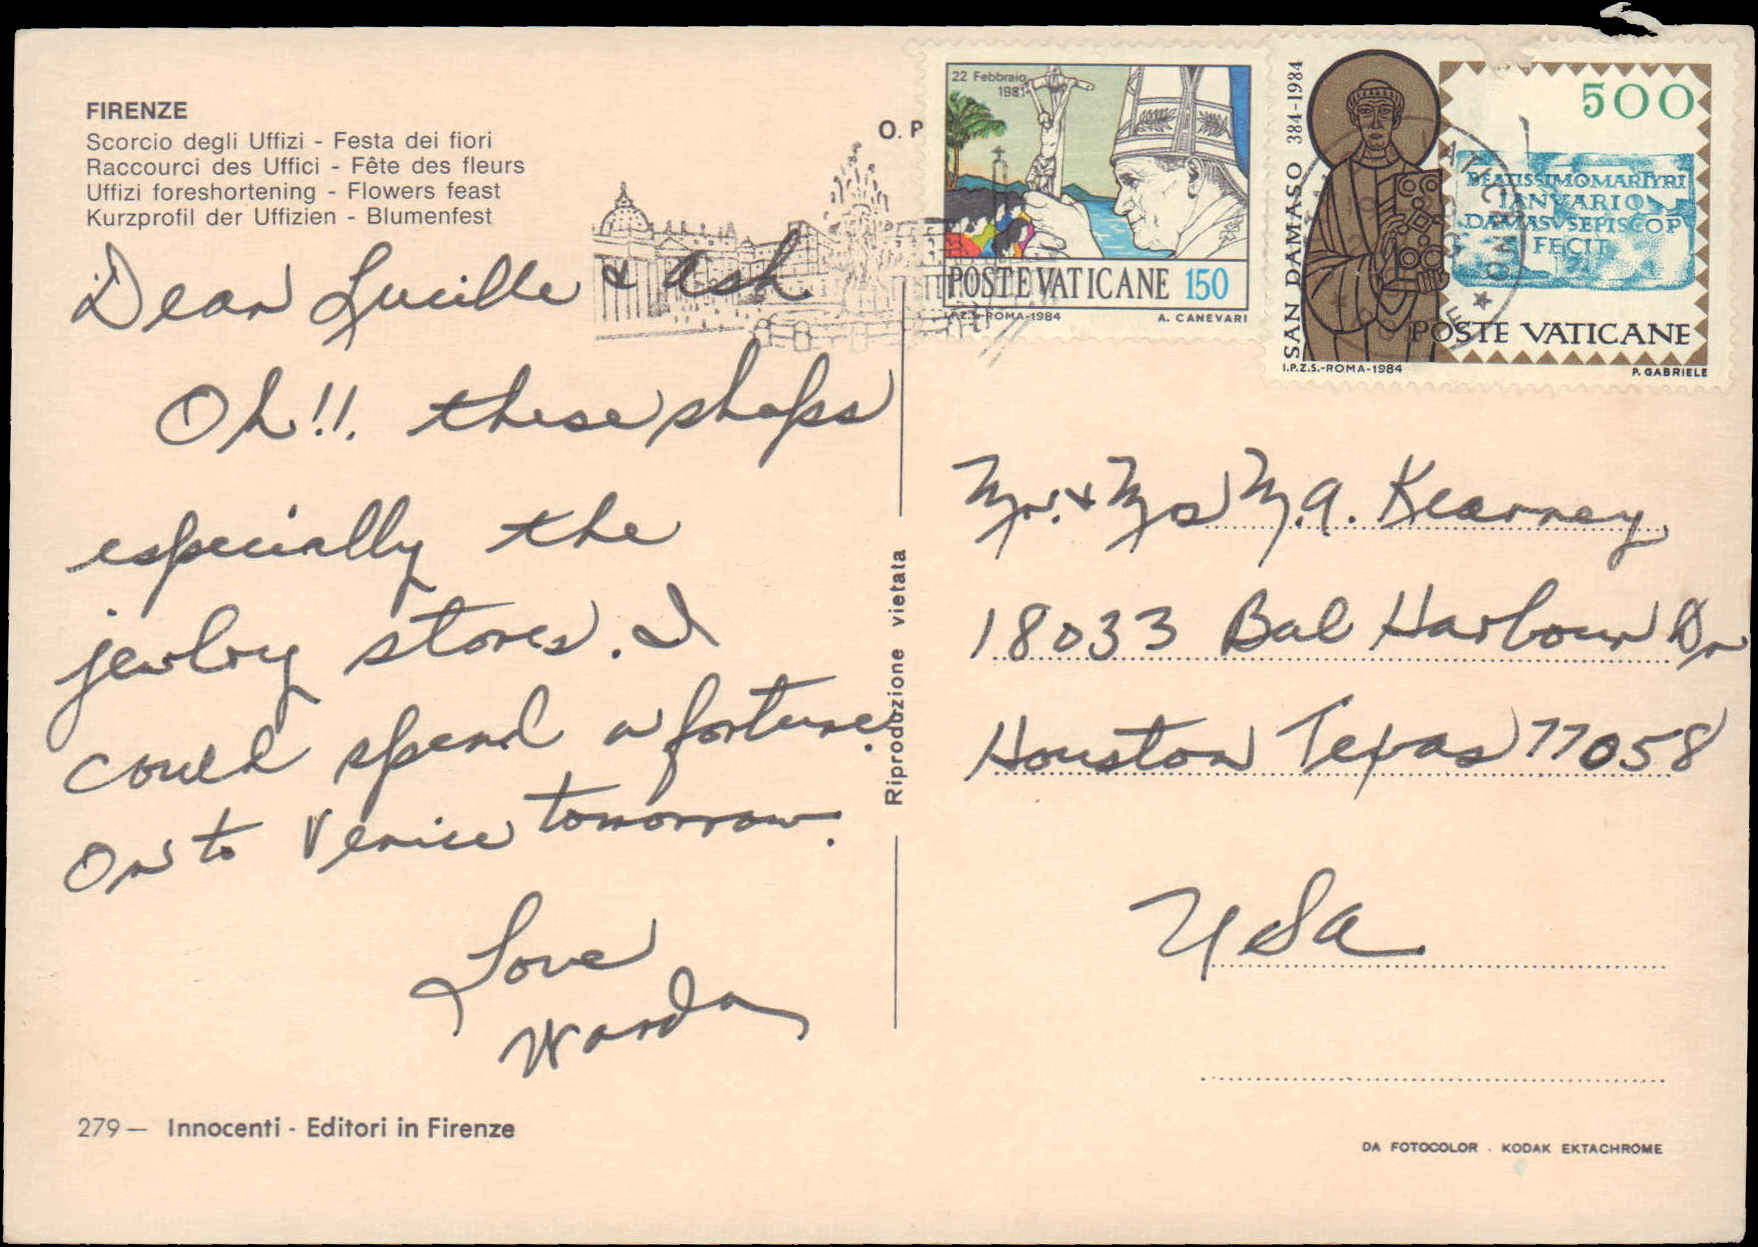 FIRENZE
Scorcio degli Uffizi - Festa dei fiori
Raccourci des Uffici - Fête des fleurs
Uffizi foreshortening - Flowers feast
Kurzprofil der Uffizien - Blumenfest
Dear Lucille & Ash
Oh!! these shops
especially the
jewlry stores. I
could spend a fortune.
On to Venice tomorrow.
Love
Wanda
279 — Innocenti - Editori in Firenze
Riproduzione vietata
O. P
22 Febbraio
1981
POSTE VATICANE 150
I.P.Z.S.-ROMA-1984 A. CANEVARI
SAN DAMASO 384-1984
500
BEATISSIMOMARTYRI
IANVARIO
DAMASVSEPISCOP
FECIT
POSTE VATICANE
I.P.Z.S.-ROMA-1984 P. GABRIELE
Mr. & Mrs M.A. Kearney
18033 Bal Harbour Dr
Houston Texas 77058
USA
DA FOTOCOLOR - KODAK EKTACHROME